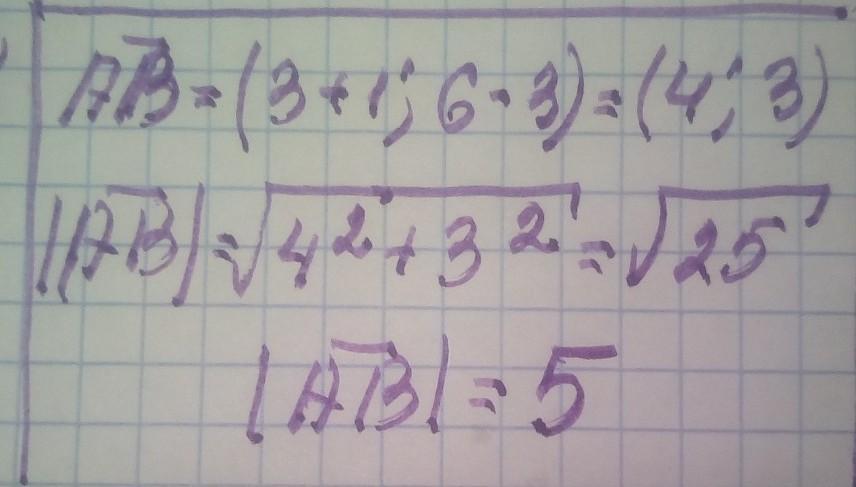 AB = (3+1; 6-3) = (4; 3)
|AB| = √4²+3² = √25
|AB| = 5